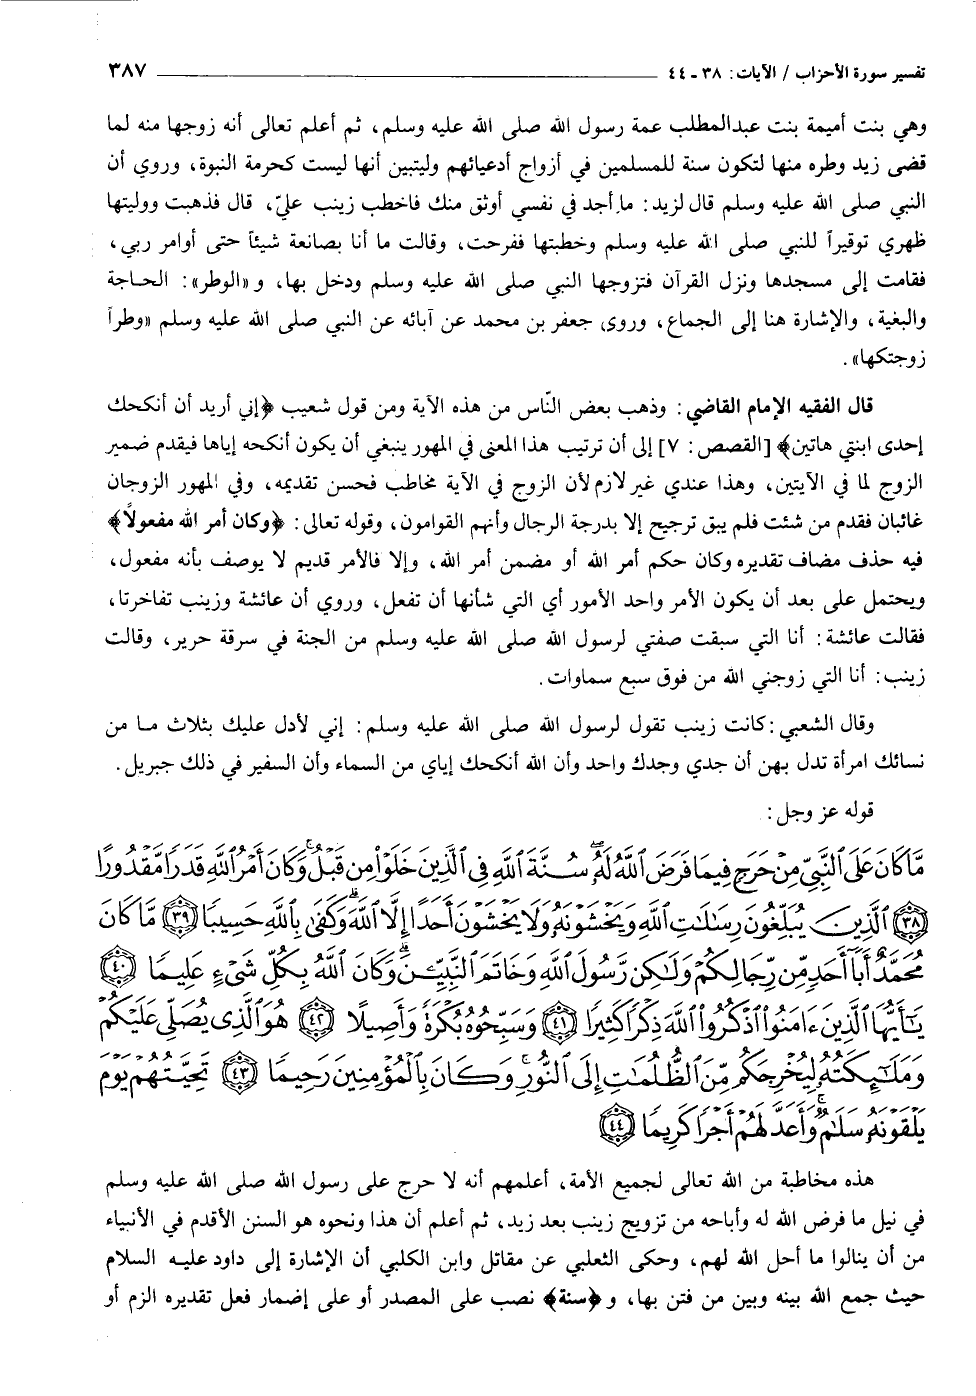 تفسير سورة الأحزاب / الآيات: ٣٨ ـ ٤٤ ٣٨٧
وهي بنت أميمة بنت عبدالمطلب عمة رسول الله صلى الله عليه وسلم، ثم أعلم تعالى أنه زوجها منه لما
قضى زيد وطره منها لتكون سنة للمسلمين في أزواج أدعيائهم وليتبين أنها ليست كحرمة النبوة، وروي أن
النبي صلى الله عليه وسلم قال لزيد: ما أجد في نفسي أوثق منك فاخطب زينب عليّ، قال فذهبت ووليتها
ظهري توقيراً للنبي صلى الله عليه وسلم وخطبتها ففرحت، وقالت ما أنا بصانعة شيئاً حتى أوامر ربي،
فقامت إلى مسجدها ونزل القرآن فتزوجها النبي صلى الله عليه وسلم ودخل بها، و «الوطر»: الحاجة
والبغية، والإشارة هنا إلى الجماع، وروى جعفر بن محمد عن آبائه عن النبي صلى الله عليه وسلم «وطراً
زوجتكها».
قال الفقيه الإمام القاضي: وذهب بعض النّاس من هذه الآية ومن قول شعيب ﴿إني أريد أن أنكحك
إحدى ابنتي هاتين﴾ [القصص: ٧] إلى أن ترتيب هذا المعنى في المهور ينبغي أن يكون أنكحه إياها فيقدم ضمير
الزوج لما في الآيتين، وهذا عندي غير لازم لأن الزوج في الآية مخاطب فحسن تقديمه، وفي المهور الزوجان
غائبان فقدم من شئت فلم يبق ترجيح إلا بدرجة الرجال وأنهم القوامون، وقوله تعالى: ﴿وكان أمر الله مفعولاً﴾
فيه حذف مضاف تقديره وكان حكم أمر الله أو مضمن أمر الله، وإلا فالأمر قديم لا يوصف بأنه مفعول،
ويحتمل على بعد أن يكون الأمر واحد الأمور أي التي شأنها أن تفعل، وروي أن عائشة وزينب تفاخرتا،
فقالت عائشة: أنا التي سبقت صفتي لرسول الله صلى الله عليه وسلم من الجنة في سرقة حرير، وقالت
زينب: أنا التي زوجني الله من فوق سبع سماوات.
وقال الشعبي: كانت زينب تقول لرسول الله صلى الله عليه وسلم: إني لأدل عليك بثلاث ما من
نسائك امرأة تدل بهن أن جدي وجدك واحد وأن الله أنكحك إياي من السماء وأن السفير في ذلك جبريل.
قوله عز وجل:
مَّا كَانَ عَلَى ٱلنَّبِيِّ مِنْ حَرَجٍ فِيمَا فَرَضَ ٱللَّهُ لَهُۥ سُنَّةَ ٱللَّهِ فِي ٱلَّذِينَ خَلَوْا۟ مِن قَبْلُ وَكَانَ أَمْرُ ٱللَّهِ قَدَرًا مَّقْدُورًا
﴿٣٨﴾ ٱلَّذِينَ يُبَلِّغُونَ رِسَٰلَٰتِ ٱللَّهِ وَيَخْشَوْنَهُۥ وَلَا يَخْشَوْنَ أَحَدًا إِلَّا ٱللَّهَ وَكَفَىٰ بِٱللَّهِ حَسِيبًا ﴿٣٩﴾ مَّا كَانَ
مُحَمَّدٌ أَبَآ أَحَدٍ مِّن رِّجَالِكُمْ وَلَٰكِن رَّسُولَ ٱللَّهِ وَخَاتَمَ ٱلنَّبِيِّـۧنَ وَكَانَ ٱللَّهُ بِكُلِّ شَىْءٍ عَلِيمًا ﴿٤٠﴾
يَٰٓأَيُّهَا ٱلَّذِينَ ءَامَنُوا۟ ٱذْكُرُوا۟ ٱللَّهَ ذِكْرًا كَثِيرًا ﴿٤١﴾ وَسَبِّحُوهُ بُكْرَةً وَأَصِيلًا ﴿٤٢﴾ هُوَ ٱلَّذِى يُصَلِّى عَلَيْكُمْ
وَمَلَٰٓئِكَتُهُۥ لِيُخْرِجَكُم مِّنَ ٱلظُّلُمَٰتِ إِلَى ٱلنُّورِ وَكَانَ بِٱلْمُؤْمِنِينَ رَحِيمًا ﴿٤٣﴾ تَحِيَّتُهُمْ يَوْمَ
يَلْقَوْنَهُۥ سَلَٰمٌ وَأَعَدَّ لَهُمْ أَجْرًا كَرِيمًا ﴿٤٤﴾
هذه مخاطبة من الله تعالى لجميع الأمة، أعلمهم أنه لا حرج على رسول الله صلى الله عليه وسلم
في نيل ما فرض الله له وأباحه من تزويج زينب بعد زيد، ثم أعلم أن هذا ونحوه هو السنن الأقدم في الأنبياء
من أن ينالوا ما أحل الله لهم، وحكى الثعلبي عن مقاتل وابن الكلبي أن الإشارة إلى داود عليه السلام
حيث جمع الله بينه وبين من فتن بها، و ﴿سنة﴾ نصب على المصدر أو على إضمار فعل تقديره الزم أو